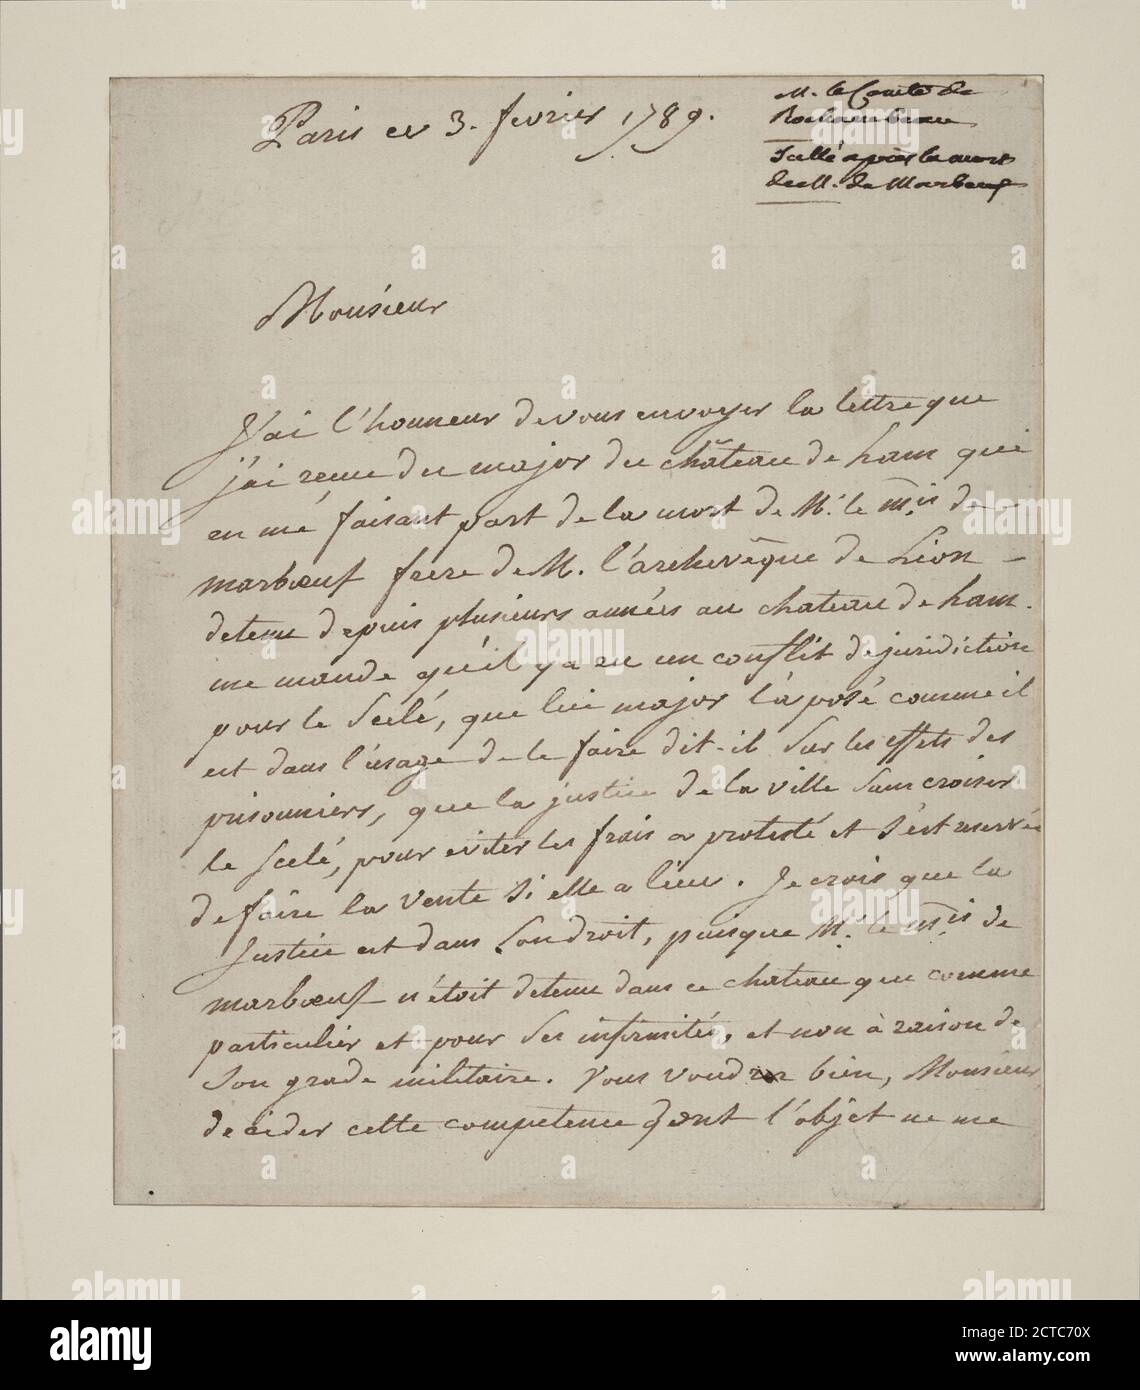 Paris ce 3. fevrier 1789.
M. le Comte de
Rochambeau
Scellé après la mort
de M. de Marbeuf
Monsieur
J'ai l'honneur de vous envoyer la lettre que
j'ai reçue du major du château de ham qui
en me faisant part de la mort de M. le mis de
marbœuf frere de M. l'archevêque de Lion
detenu depuis plusieurs années au chateau de ham.
me mande qu'il y a eu un conflit de juridiction
pour le Scélé, que lui major l'a posé comme il
est dans l'usage de le faire dit-il sur les effets des
prisonniers, que la justice de la ville sans croiser
le scelé, pour eviter les frais a protesté et s'est reservée
de faire la vente si elle a lieu. Je crois que la
Justice est dans son droit, puisque M. le mis de
marbœuf n'étoit detenu dans ce chateau que comme
particulier et pour ses infirmités, et non à raison de
son grade militaire. Vous voudrez bien, Monsieur
decider cette competence dont l'objet ne me
alamy
a
alamy
Image ID: 2CTC70X
www.alamy.com